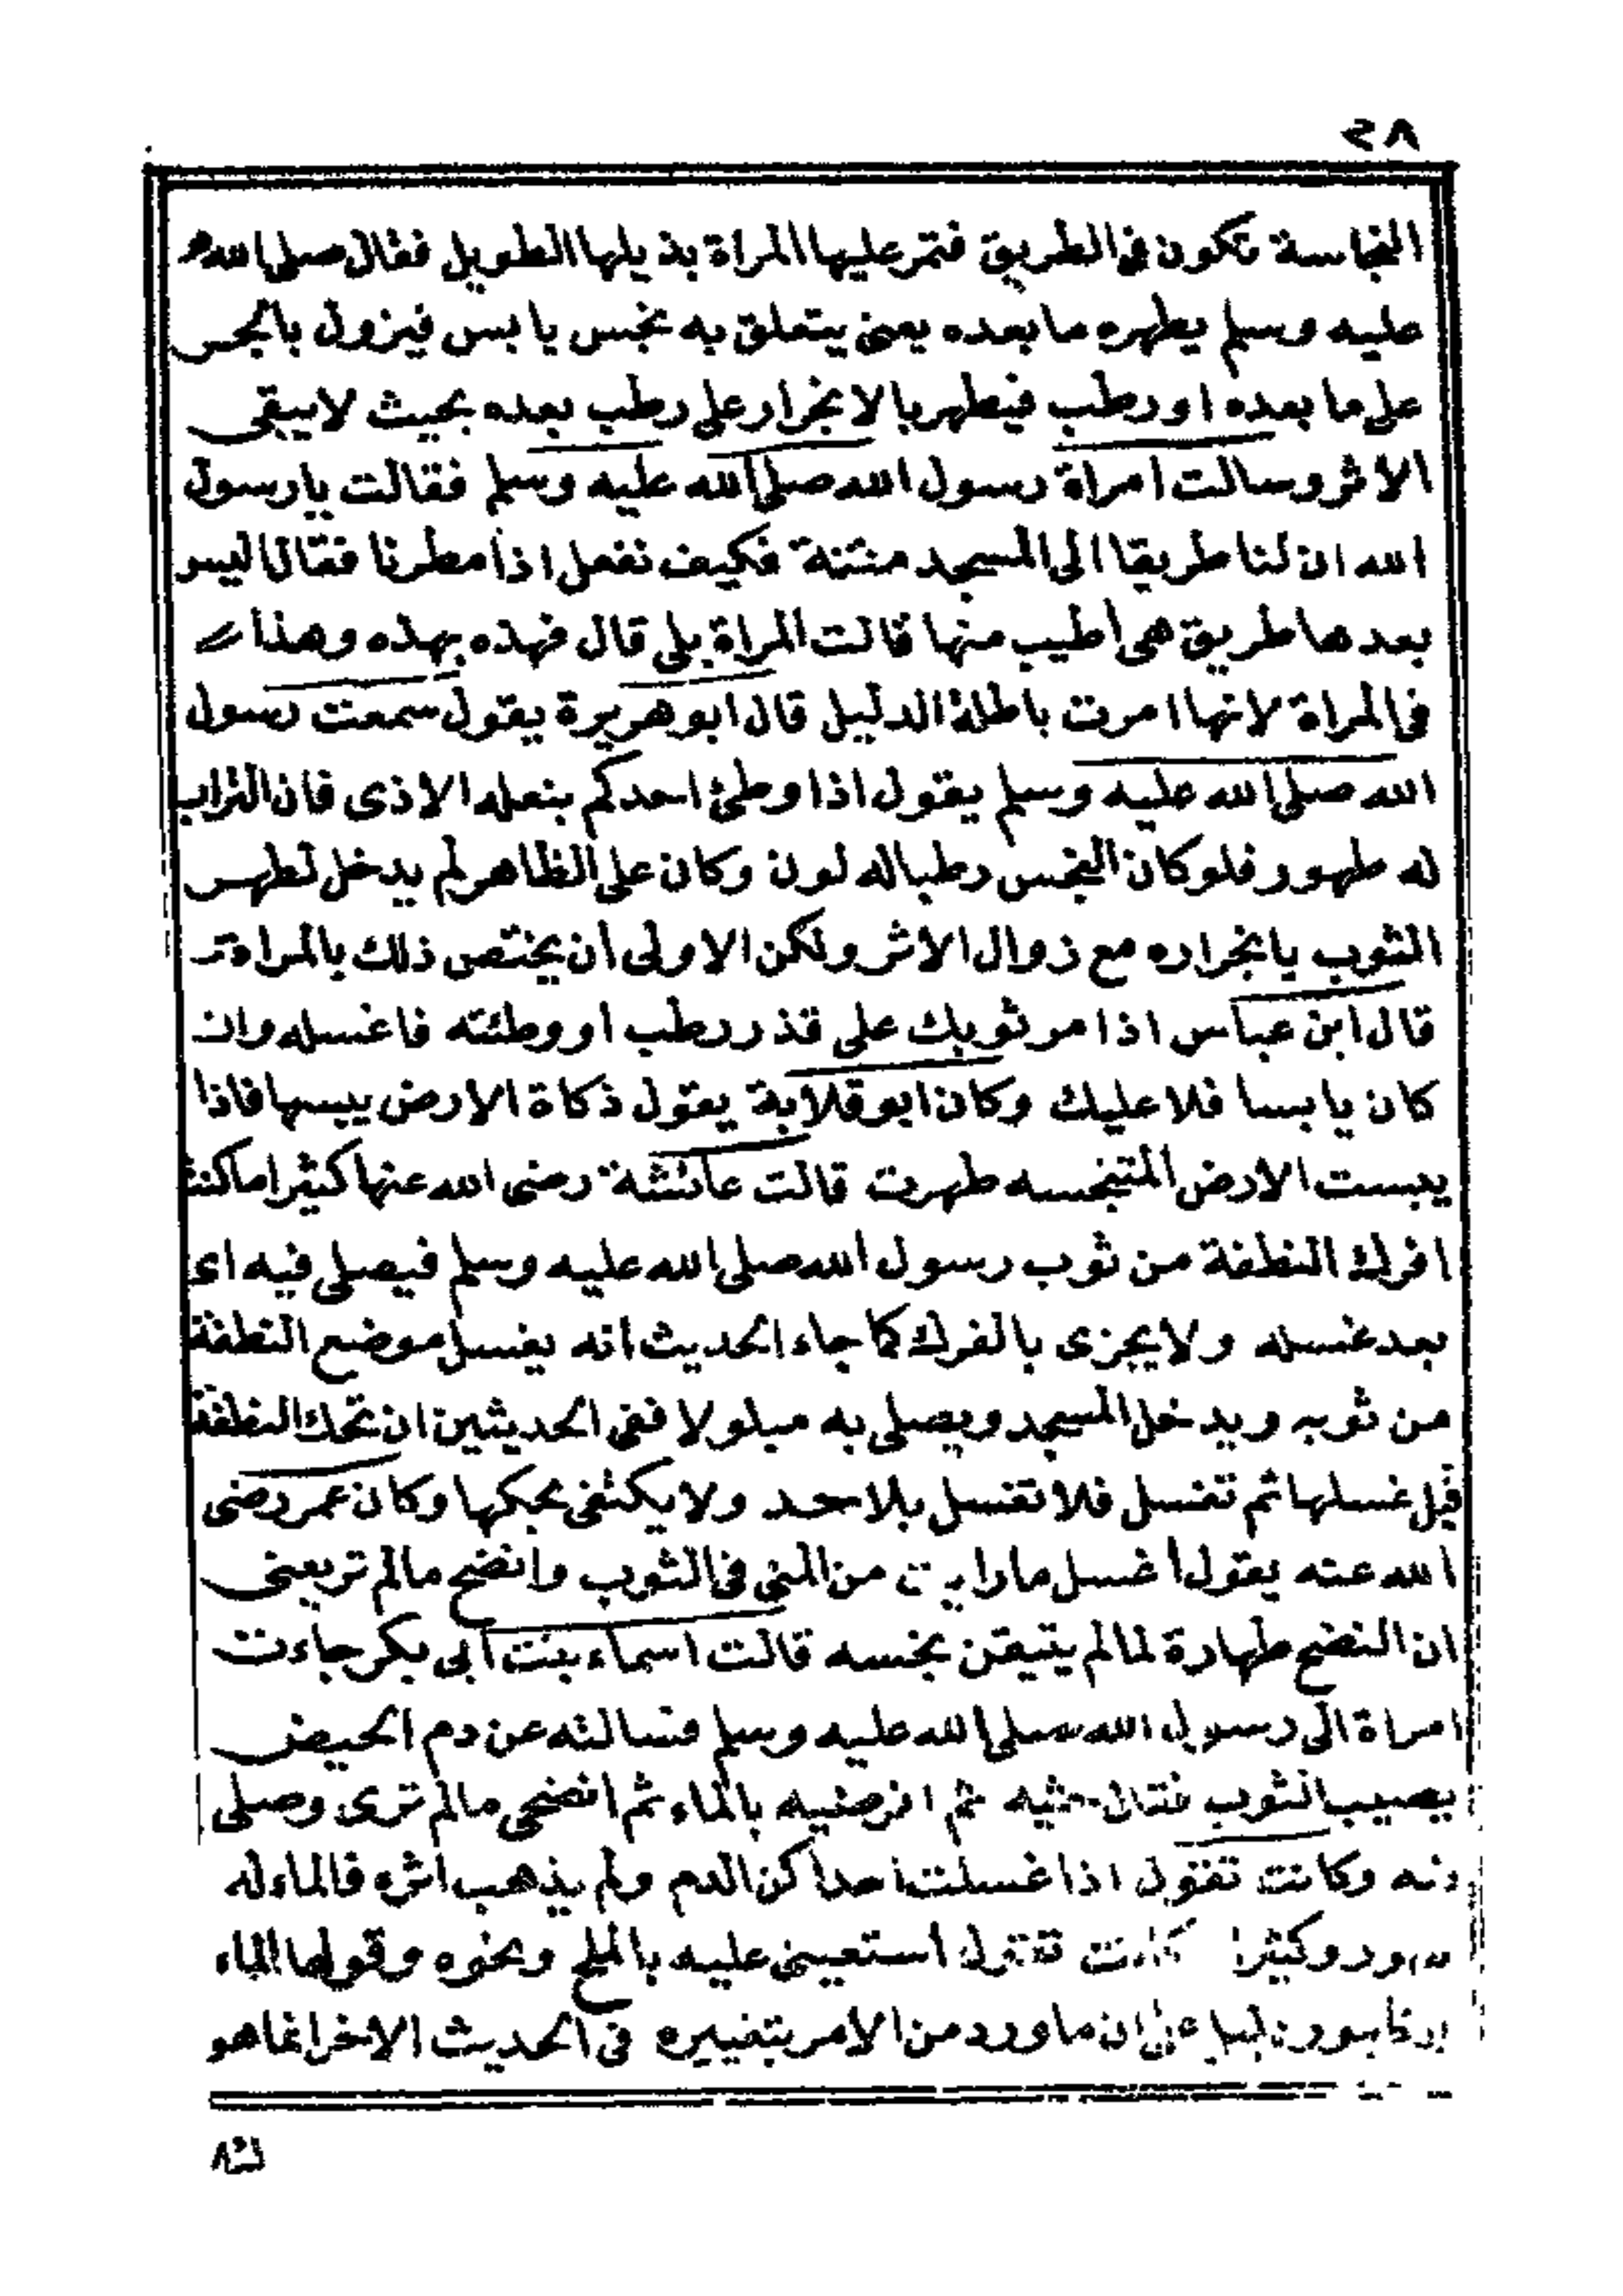 ٨٢
النجاسة تكون فى الطريق فتمر عليها المراة بذيلها الطويل فقال صلى الله
عليه وسلم يطهره ما بعده يعنى يتعلق به نجس يابس فيزول بالجر
على ما بعده او رطب فيطهر بالانجرار على رطب بعده بحيث لا يبقى
الاثر وسالت امراة رسول الله صلى الله عليه وسلم فقالت يا رسول
الله ان لنا طريقا الى المسجد منتنة فكيف نفعل اذا مطرنا فقال اليس
بعدها طريق هى أطيب منها قالت المراة بلى قال فهذه بهذه وهذا
فى المراة لانها امرت باطالة الذيل قال ابو هريرة يقول سمعت رسول
الله صلى الله عليه وسلم يقول اذا وطئ احدكم بنعله الاذى فان التراب
له طهور فلو كان النجس رطبا له لون وكان على الظاهر لم يدخل لطهر
الثوب بانجراره مع زوال الاثر ولكن الاولى أن يختص ذلك بالمراة
قال ابن عباس اذا مر ثوبك على قذر رطب او وطئته فاغسله وان
كان يابسا فلا عليك وكان ابو قلابة يقول ذكاة الارض يبسها فاذا
يبست الارض المتنجسه طهرت قالت عائشة رضى الله عنها كثيرا ما كنت
افرك النطفة من ثوب رسول الله صلى الله عليه وسلم فيصلى فيه اى
بعد غسله ولا يجزى بالفرك كما جاء الحديث انه يغسل موضع النطفة
من ثوبه ويدخل المسجد ويصلى به مبلولا ففى الحديثين ان تحك النطفة
قبل غسلها ثم تغسل فلا تغسل بلا حد ولا يكتفى بحكها وكان عمر رضى
الله عنه يقول أغسل ما رايت من المنى فى الثوب وانضح مالم تر يعنى
ان النضح طهارة لما لم يتيقن بخسه قالت اسماء بنت أبى بكر جاءت
امراة الى رسول الله صلى الله عليه وسلم فسالته عن دم الحيض
يصيب الثوب فقال حتيه ثم اقرصيه بالماء ثم انضحى مالم ترى وصلى
وكانت تقول اذا غسلت احداكن الدم ولم يذهب اثره فالماء له
وكثيرا كانت تقول استعينى عليه بالملح ونحوه وقولها الماء
ان ما ورد من الامر بتغييره فى الحديث الاخر انما هو